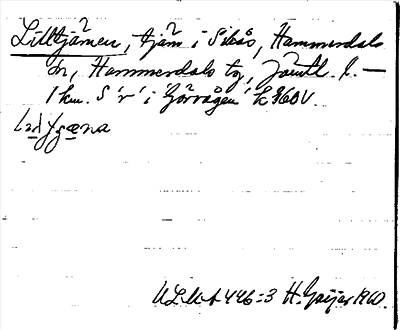 Lilltjärnen, tjärn i Sikås, Hammerdals
sn, Hammerdals tg, Jämtl. l. —
1 km. S 'r' i 'Görvågen' k 960V.
ULMA 446:3 H. Geijer 1960.